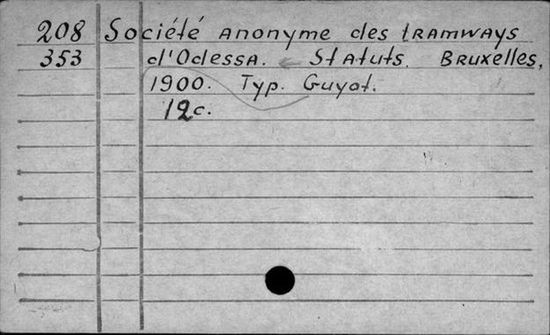 208 Société anonyme des tramways
353 d'Odessa. Statuts. Bruxelles,
1900. Typ. Guyot.
12c.